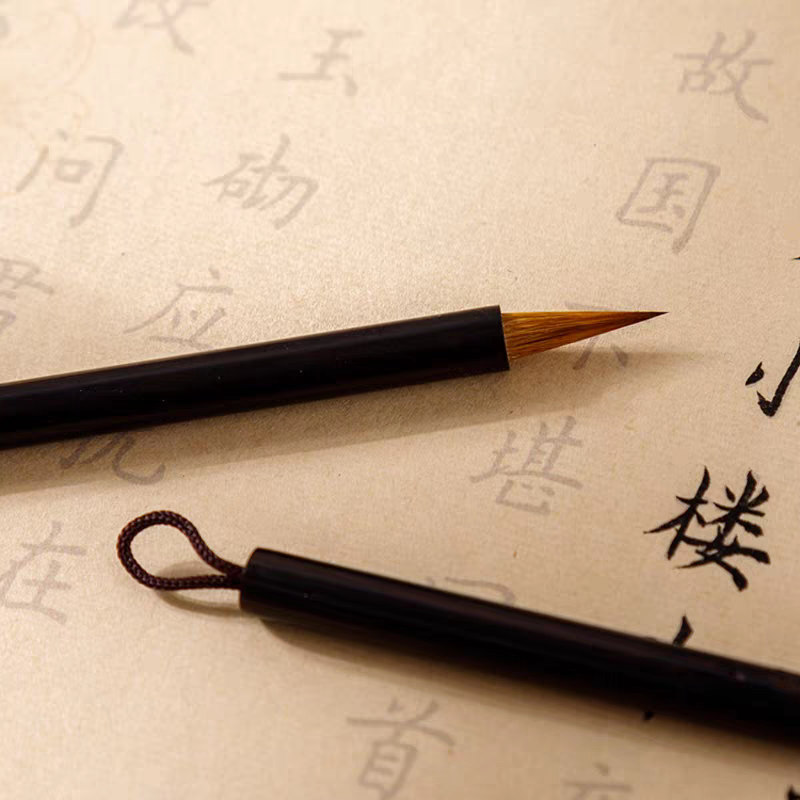 楼
故国不堪回首
玉砌应犹在
改问君